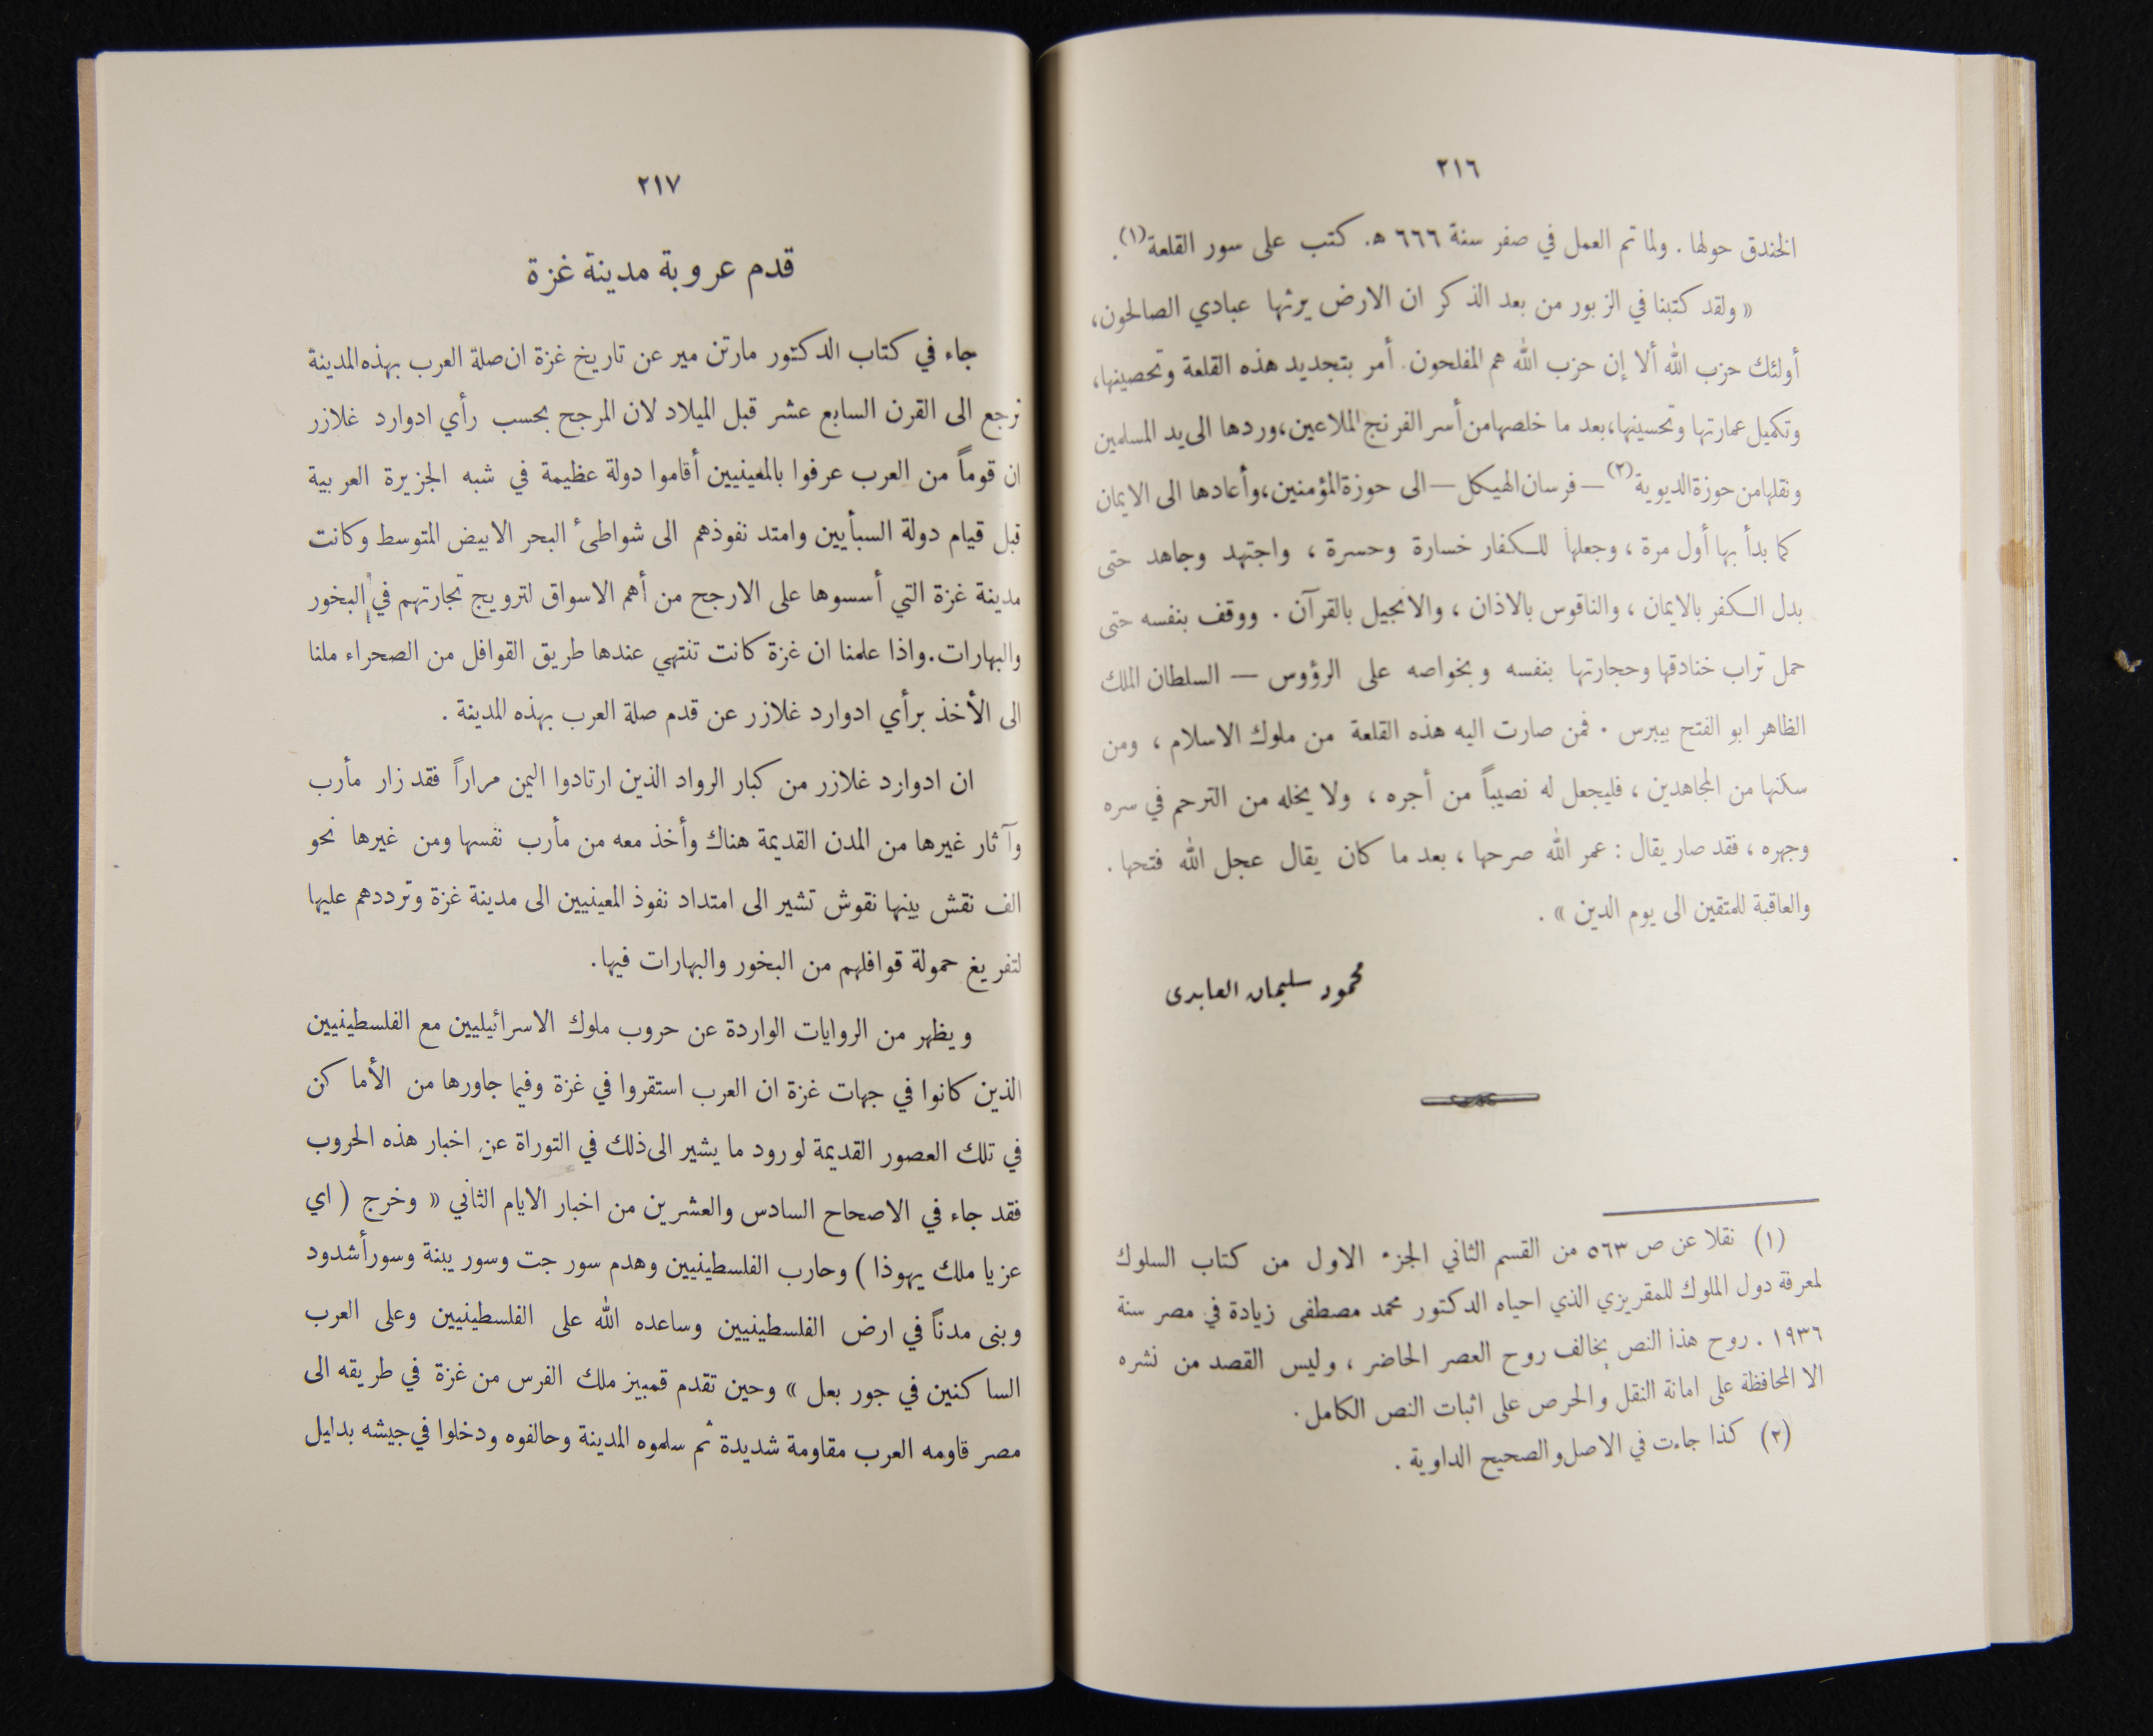 ٢١٦
الخندق حولها . ولما تم العمل في صفر سنة ٦٦٦ ه. كتب على سور القلعة(١).
« ولقد كتبنا في الزبور من بعد الذكر ان الارض يرثها عبادي الصالحون،
أولئك حزب الله ألا إن حزب الله هم المفلحون. أمر بتجديد هذه القلعة وتحصينها،
وتكميل عمارتها وتحسينها، بعد ما خلصها من أسر الفرنج الملاعين، وردها الى يد المسلمين
ونقلها من حوزة الديوية(٢) — فرسان الهيكل — الى حوزة المؤمنين، وأعادها الى الايمان
كما بدأ بها أول مرة ، وجعلها للكفار خسارة وحسرة ، واجتهد وجاهد حتى
بدل الكفر بالايمان ، والناقوس بالاذان ، والانجيل بالقرآن . ووقف بنفسه حتى
حمل تراب خنادقها وحجارتها بنفسه وبخواصه على الرؤوس — السلطان الملك
الظاهر ابو الفتح بيبرس . فمن صارت اليه هذه القلعة من ملوك الاسلام ، ومن
سكنها من المجاهدين ، فليجعل له نصيباً من أجره ، ولا يخله من الترحم في سره
وجهره ، فقد صار يقال : عمر الله صرحها ، بعد ما كان يقال عجل الله فتحها .
والعاقبة للمتقين الى يوم الدين » .
محمود سليمان العابدى
(١) نقلا عن ص ٥٦٣ من القسم الثاني الجزء الاول من كتاب السلوك
لمعرفة دول الملوك للمقريزي الذي احياه الدكتور محمد مصطفى زيادة في مصر سنة
١٩٣٦ . روح هذا النص يخالف روح العصر الحاضر ، وليس القصد من نشره
الا المحافظة على امانة النقل والحرص على اثبات النص الكامل .
(٢) كذا جاءت في الاصل والصحيح الداوية .
٢١٧
قدم عروبة مدينة غزة
جاء في كتاب الدكتور مارتن مير عن تاريخ غزة ان صلة العرب بهذه المدينة
ترجع الى القرن السابع عشر قبل الميلاد لان المرجح بحسب رأي ادوارد غلازر
ان قوماً من العرب عرفوا بالمعينيين أقاموا دولة عظيمة في شبه الجزيرة العربية
قبل قيام دولة السبأيين وامتد نفوذهم الى شواطئ البحر الابيض المتوسط وكانت
مدينة غزة التي أسسوها على الارجح من أهم الاسواق لترويج تجارتهم في البخور
والبهارات. واذا علمنا ان غزة كانت تنتهي عندها طريق القوافل من الصحراء ملنا
الى الأخذ برأي ادوارد غلازر عن قدم صلة العرب بهذه المدينة .
ان ادوارد غلازر من كبار الرواد الذين ارتادوا اليمن مراراً فقد زار مأرب
وآثار غيرها من المدن القديمة هناك وأخذ معه من مأرب نفسها ومن غيرها نحو
الف نقش بينها نقوش تشير الى امتداد نفوذ المعينيين الى مدينة غزة وترددهم عليها
لتفريغ حمولة قوافلهم من البخور والبهارات فيها.
ويظهر من الروايات الواردة عن حروب ملوك الاسرائيليين مع الفلسطينيين
الذين كانوا في جهات غزة ان العرب استقروا في غزة وفيما جاورها من الأماكن
في تلك العصور القديمة لورود ما يشير الى ذلك في التوراة عن اخبار هذه الحروب
فقد جاء في الاصحاح السادس والعشرين من اخبار الايام الثاني « وخرج ( اي
عزيا ملك يهوذا ) وحارب الفلسطينيين وهدم سور جت وسور يبنة وسور أشدود
وبنى مدناً في ارض الفلسطينيين وساعده الله على الفلسطينيين وعلى العرب
الساكنين في جور بعل » وحين تقدم قمبيز ملك الفرس من غزة في طريقه الى
مصر قاومه العرب مقاومة شديدة ثم سلموه المدينة وحالفوه ودخلوا في جيشه بدليل